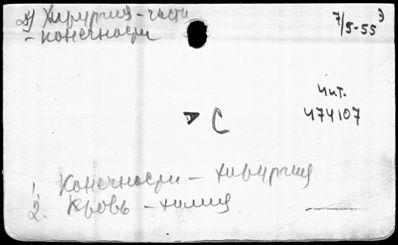 2) Хирургия - часть
- конечности
7/5-55 э
Чит.
474107
С
1. Конечности - хирургия
2. Кровь - химия